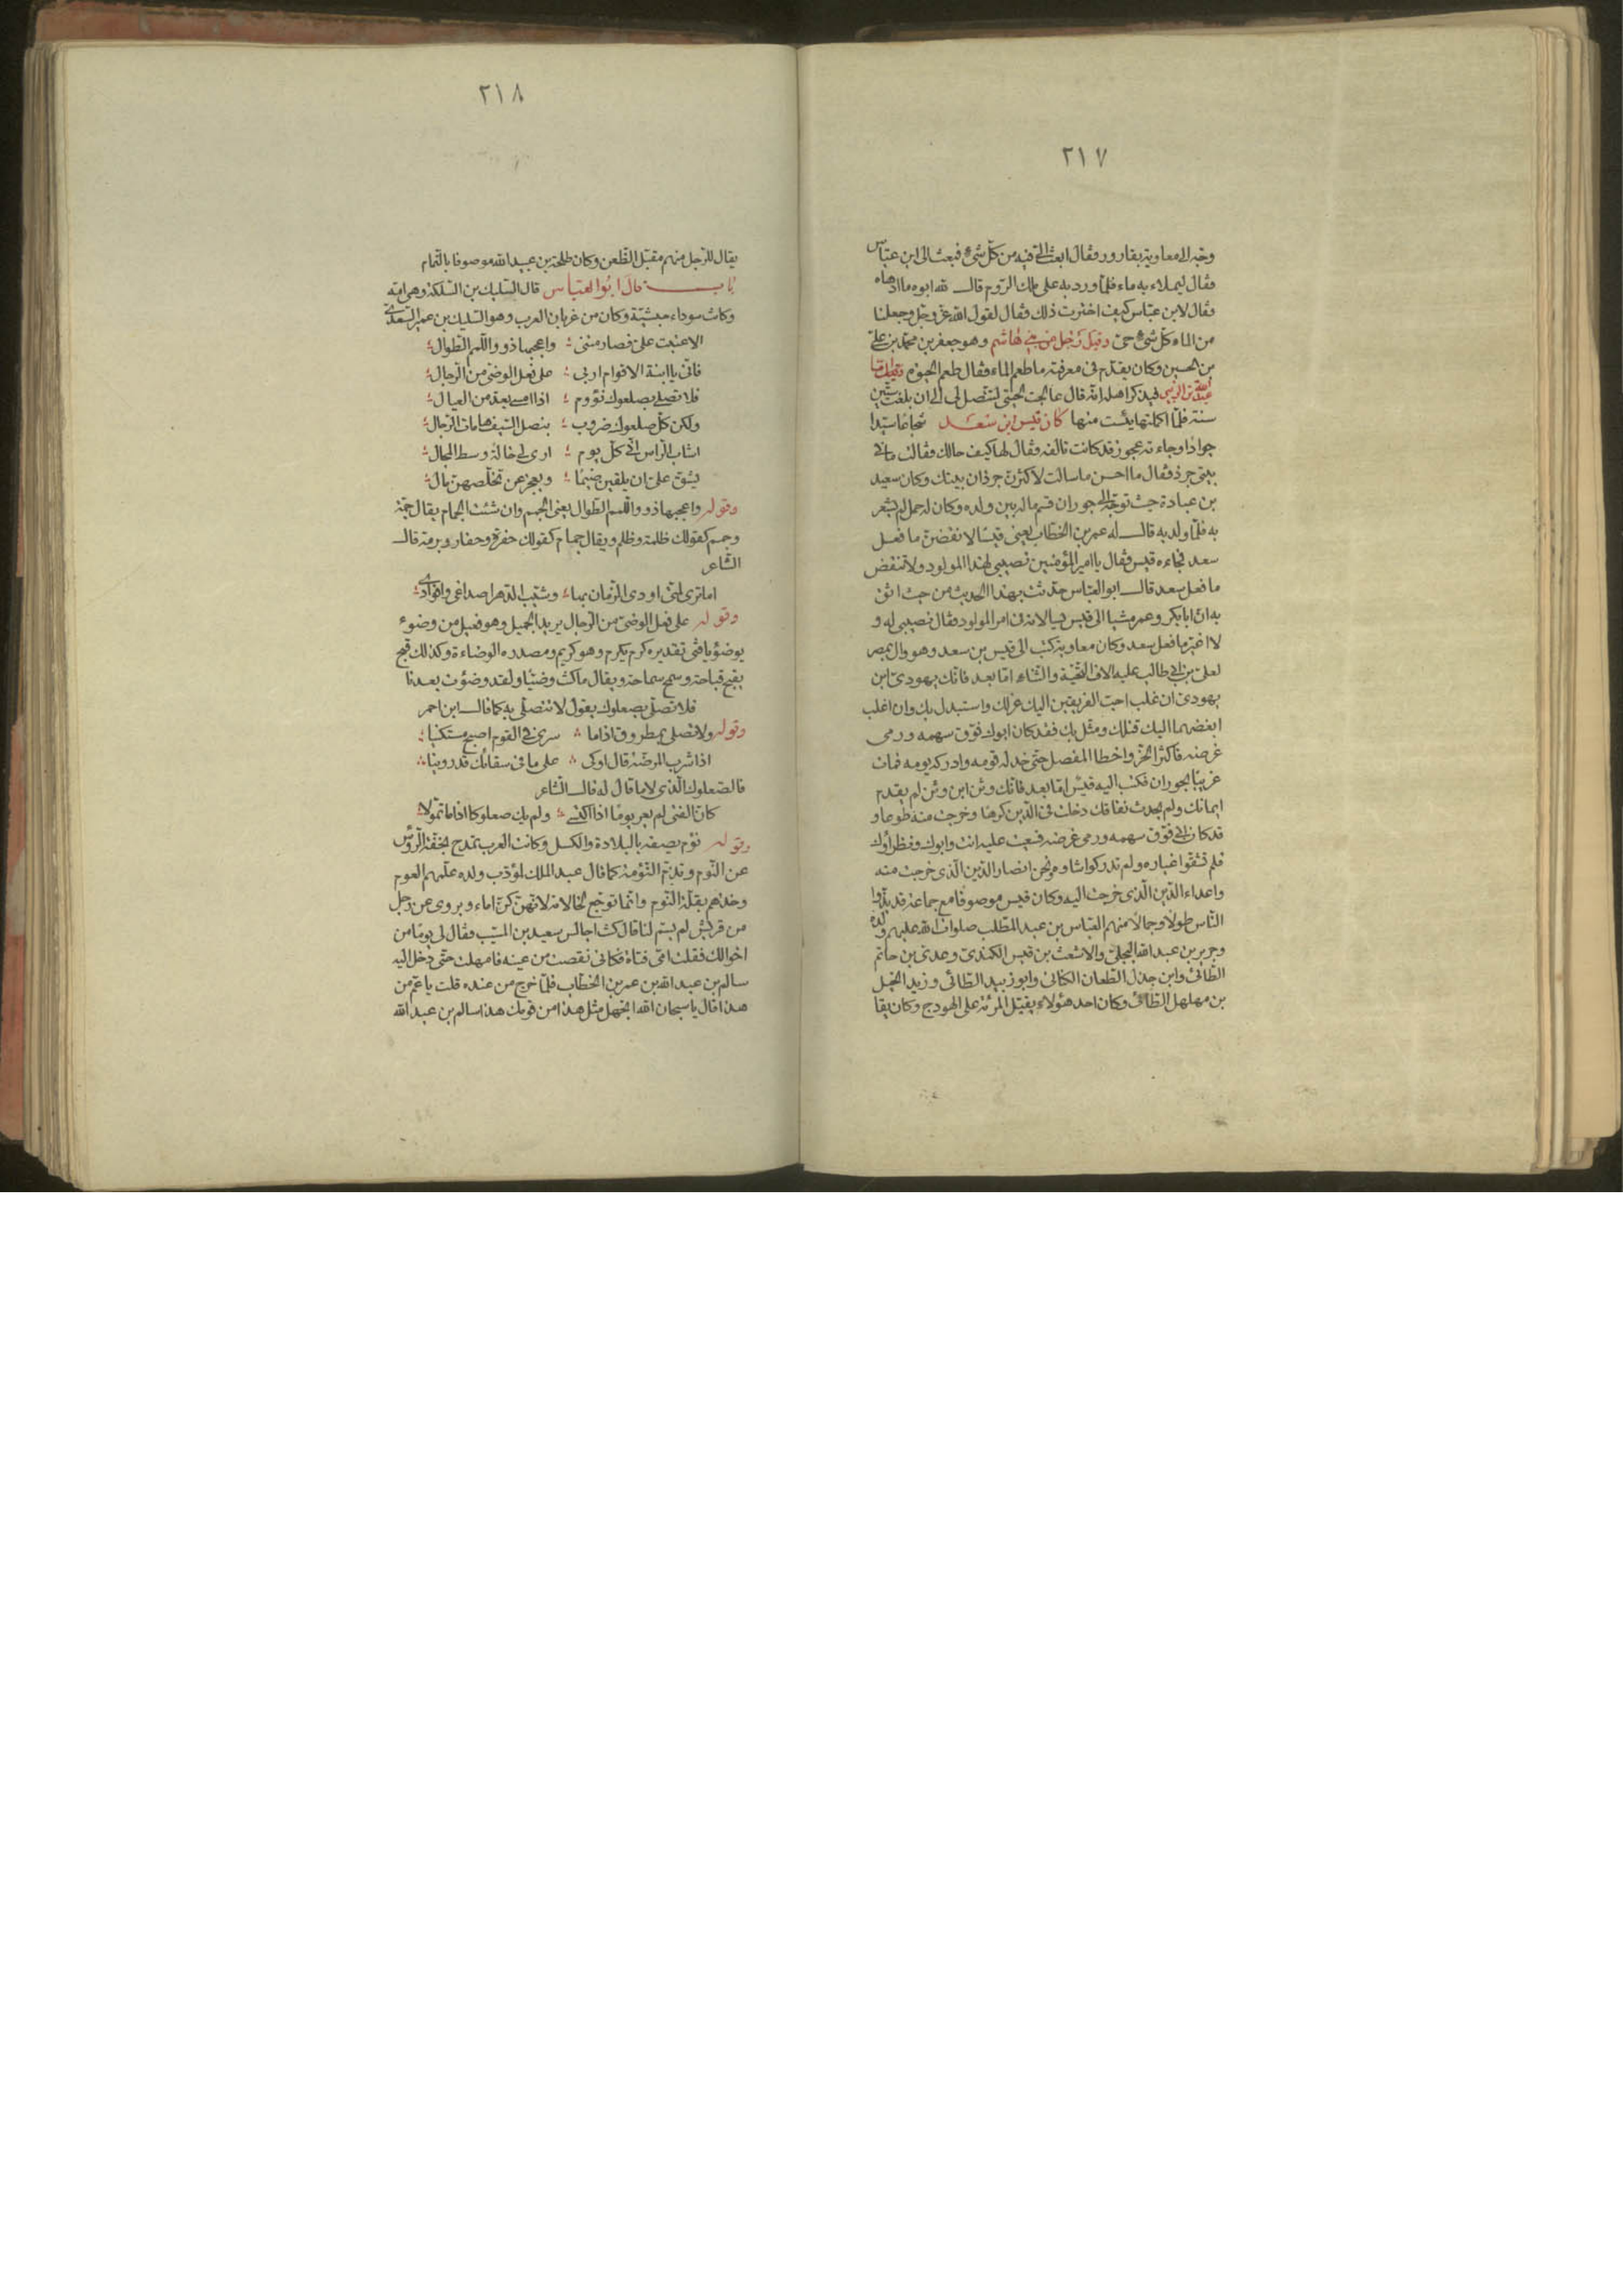 ٢١٧
وجه الى معاوية بقارورة وقال ابعث الي فيه من كل شئ فبعث الى ابن عباس
وقال ليملاء به ماء فلما ورد به على ملك الروم قال لله ابوه ما ادهاه
وقال لابن عباس كيف اخترت ذلك وقال لقول الله عز وجل وجعلنا
من الماء كل شئ حي وقيل لرجل من بني هاشم وهو جعفر بن محمد بن علي
بن الحسين وكان يقدم في معرفته ما طعم الماء وقال طعم الحيوة
عبد الله بن الزبير فيذكر اهله انه قال عالجت لحيتي لتتصل لي الى ان بلغت ستين
سنة فلما اكملتها يئست منها كان قيس ابن سعد شجاعا سيدا
جوادا وجاءته عجوز قد كانت تالفه وقال لها كيف حالك وقالت ما في
بيتي جرذ وقال ما احسن ما سالت لاكثرن جرذان بيتك وكان سعيد
بن عبادة حيث توجه الى حوران قسم ماله بين ولده وكان له حمل لم يشعر
به فلما ولد به قال له عمر بن الخطاب يعني قيسا لانقضن ما فعل
سعد فجاءه قيس وقال يا امير المؤمنين نصيبي لهذا المولود ولا تنقض
ما فعل سعد قال ابو العباس حدثت بهذا الحديث من حيث اثق
به ان ابا بكر وعمر مشيا الى قيس يسالانه في امر المولود وقال نصيبي له و
لا اغير ما فعل سعد وكان معاوية كتب الى قيس بن سعد وهو وال بمصر
لعلي بن ابي طالب عليه الاف التحية والثناء اما بعد فانك يهودي ابن
يهودي ان غلب احب الفريقين اليك عزلك واستبدل بك وان اغلب
ابغضهما اليك قتلك ومثل بك فقد كان ابوك فوق سهمه ورمى
غرضه فاكثر الحز واخطا المفصل حتى خذله قومه وادركه يومه فمات
غريبا بحوران فكتب اليه قيس اما بعد فانك وثن ابن وثن لم يقدم
ايمانك ولم يحدث نفاقك دخلت في الدين كرها وخرجت منه طوعا و
قد كان ابي فوق سهمه ورمى غرضه فسعيت عليه انت وابوك ونظراؤك
فلم تشقوا غباره ولم تدركوا شاوه ونحن انصار الدين الذي خرجت منه
واعداء الدين الذي خرجت اليه وكان قيس موصوفا مع جماعة قد بذوا
الناس طولا وجمالا منهم العباس بن عبد المطلب صلوات الله عليهم وولده
وجرير بن عبد الله البجلي والاشعث بن قيس الكندي وعدي بن حاتم
الطائي وابن جذل الطعان الكناني وابو زبيد الطائي وزيد الخيل
بن مهلهل الطائي وكان احد هؤلاء يقبل المرئة على الهودج وكان يقا
٢١٨
يقال للرجل منهم مقبل الظعن وكان طلحة بن عبيد الله موصوفا بالتمام
باب قال ابو العباس قال السليك بن السلكة وهي امه
وكانت سوداء حبشية وكان من غربان العرب وهو السليك بن عمير السعدي
الا عتبت علي فصارمتني واعجبها ذوو اللمم الطوال
فاني يا ابنة الاقوام اربي على فعل الوضي من الرجال
فلا تصلي بصعلوك نؤوم اذا امسى يعد من العيال
ولكن كل صعلوك ضروب بنصل السيف هامات الرجال
اشاب الراس اني كل يوم ارى لي خالة وسط الرجال
يشق علي ان يلقين ضيما ويعجز عن تخلصهن مالي
وقوله واعجبها ذوو اللمم الطوال يعني الجمم وان شئت الجمام يقال جمة
وجمم كقولك ظلمة وظلم ويقال جمام كقولك حفرة وحفار وبرمة قال
الشاعر
اما تري لمتي اودى الزمان بها وشيب الدهر اصداغي وافوادي
وقوله على فعل الوضي من الرجال يريد الجميل وهو فعيل من وضوء
يوضؤ يا فتى تقديره كرم يكرم وهو كريم ومصدره الوضاءة وكذلك قبح
يقبح قباحة وسمح سماحة ويقال ما كنت وضيا ولقد وضؤت بعدنا
فلا تصلي بصعلوك يقول لا تتصلي به كما قال ابن احمر
وقوله ولا تصلي بمطروق اذا ما سرى في القوم اصبح مستكينا
اذا شرب المرضة قال اوكي على ما في سقائك قد روينا
فالصعلوك الذي لا مال له قال الشاعر
كان الفتى لم يعر يوما اذا اكتسى ولم يك صعلوكا اذا ما تمولا
وقوله نؤم يصفه بالبلادة والكسل وكانت العرب تمدح بخفة الرؤس
عن النوم وتذم النؤمة كما قال عبد الملك لمؤدب ولده علمهم العوم
وخذهم بقلة النوم وانما توجع لخالاته لانهن كن اماء ويروى عن رجل
من قريش لم يسم لنا قال كنت اجالس سعيد بن المسيب وقال لي يوما من
اخوالك فقلت امي فتاة فكاني نقصت من عينه فامهلت حتى دخل اليه
سالم بن عبد الله بن عمر بن الخطاب فلما خرج من عنده قلت يا عم من
هذا قال يا سبحان الله اتجهل مثل هذا من قومك هذا سالم بن عبد الله